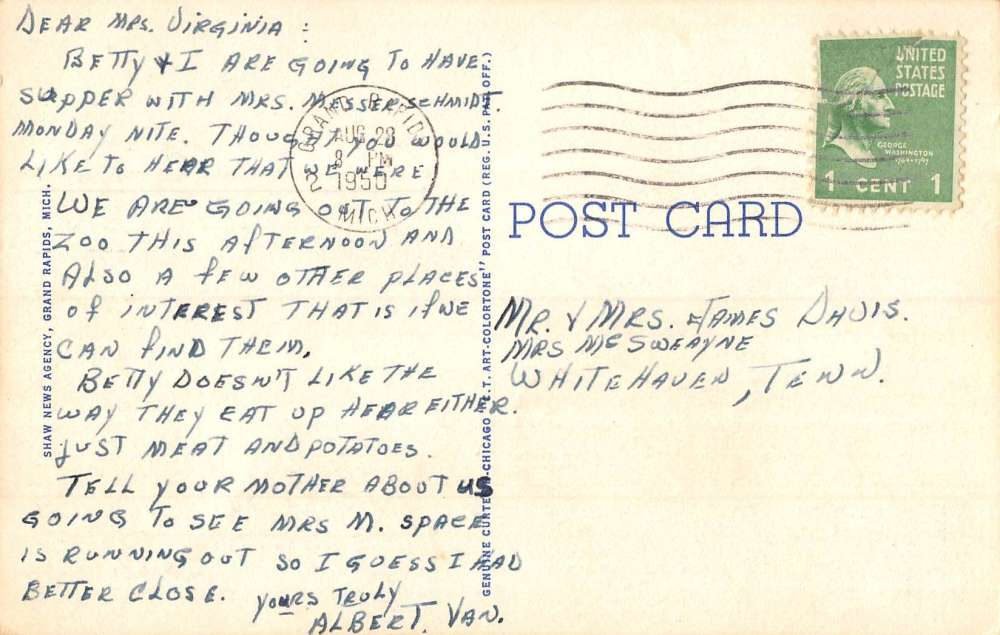 DEAR MRS. VIRGINIA :
BETTY & I ARE GOING TO HAVE
SUPPER WITH MRS. MESSERSCHMIDT.
MONDAY NITE. THOUGHT YOU WOULD
LIKE TO HEAR THAT WE WERE.
WE ARE GOING OUT TO THE
ZOO THIS AFTERNOON AND
ALSO A FEW OTHER PLACES
OF INTEREST THAT IS IF WE
CAN FIND THEM.
BETTY DOESN'T LIKE THE
WAY THEY EAT UP HEAR EITHER.
JUST MEAT AND POTATOES.
TELL YOUR MOTHER ABOUT US
GOING TO SEE MRS M. SPACE
IS RUNNING OUT SO I GUESS I HAD
BETTER CLOSE.
YOURS TRULY
ALBERT. VAN.
SHAW NEWS AGENCY, GRAND RAPIDS, MICH.
GENUINE CURTEICH-CHICAGO "C.T. ART-COLORTONE" POST CARD (REG. U.S. PAT. OFF.)
GRAND RAPIDS
AUG 28
8 PM
1950
2 MICH.
UNITED
STATES
POSTAGE
GEORGE
WASHINGTON
1789-1797
1 CENT 1
POST CARD
MR. & MRS. JAMES DAVIS.
MRS MCSWEAYNE
WHITEHAVEN, TENN.